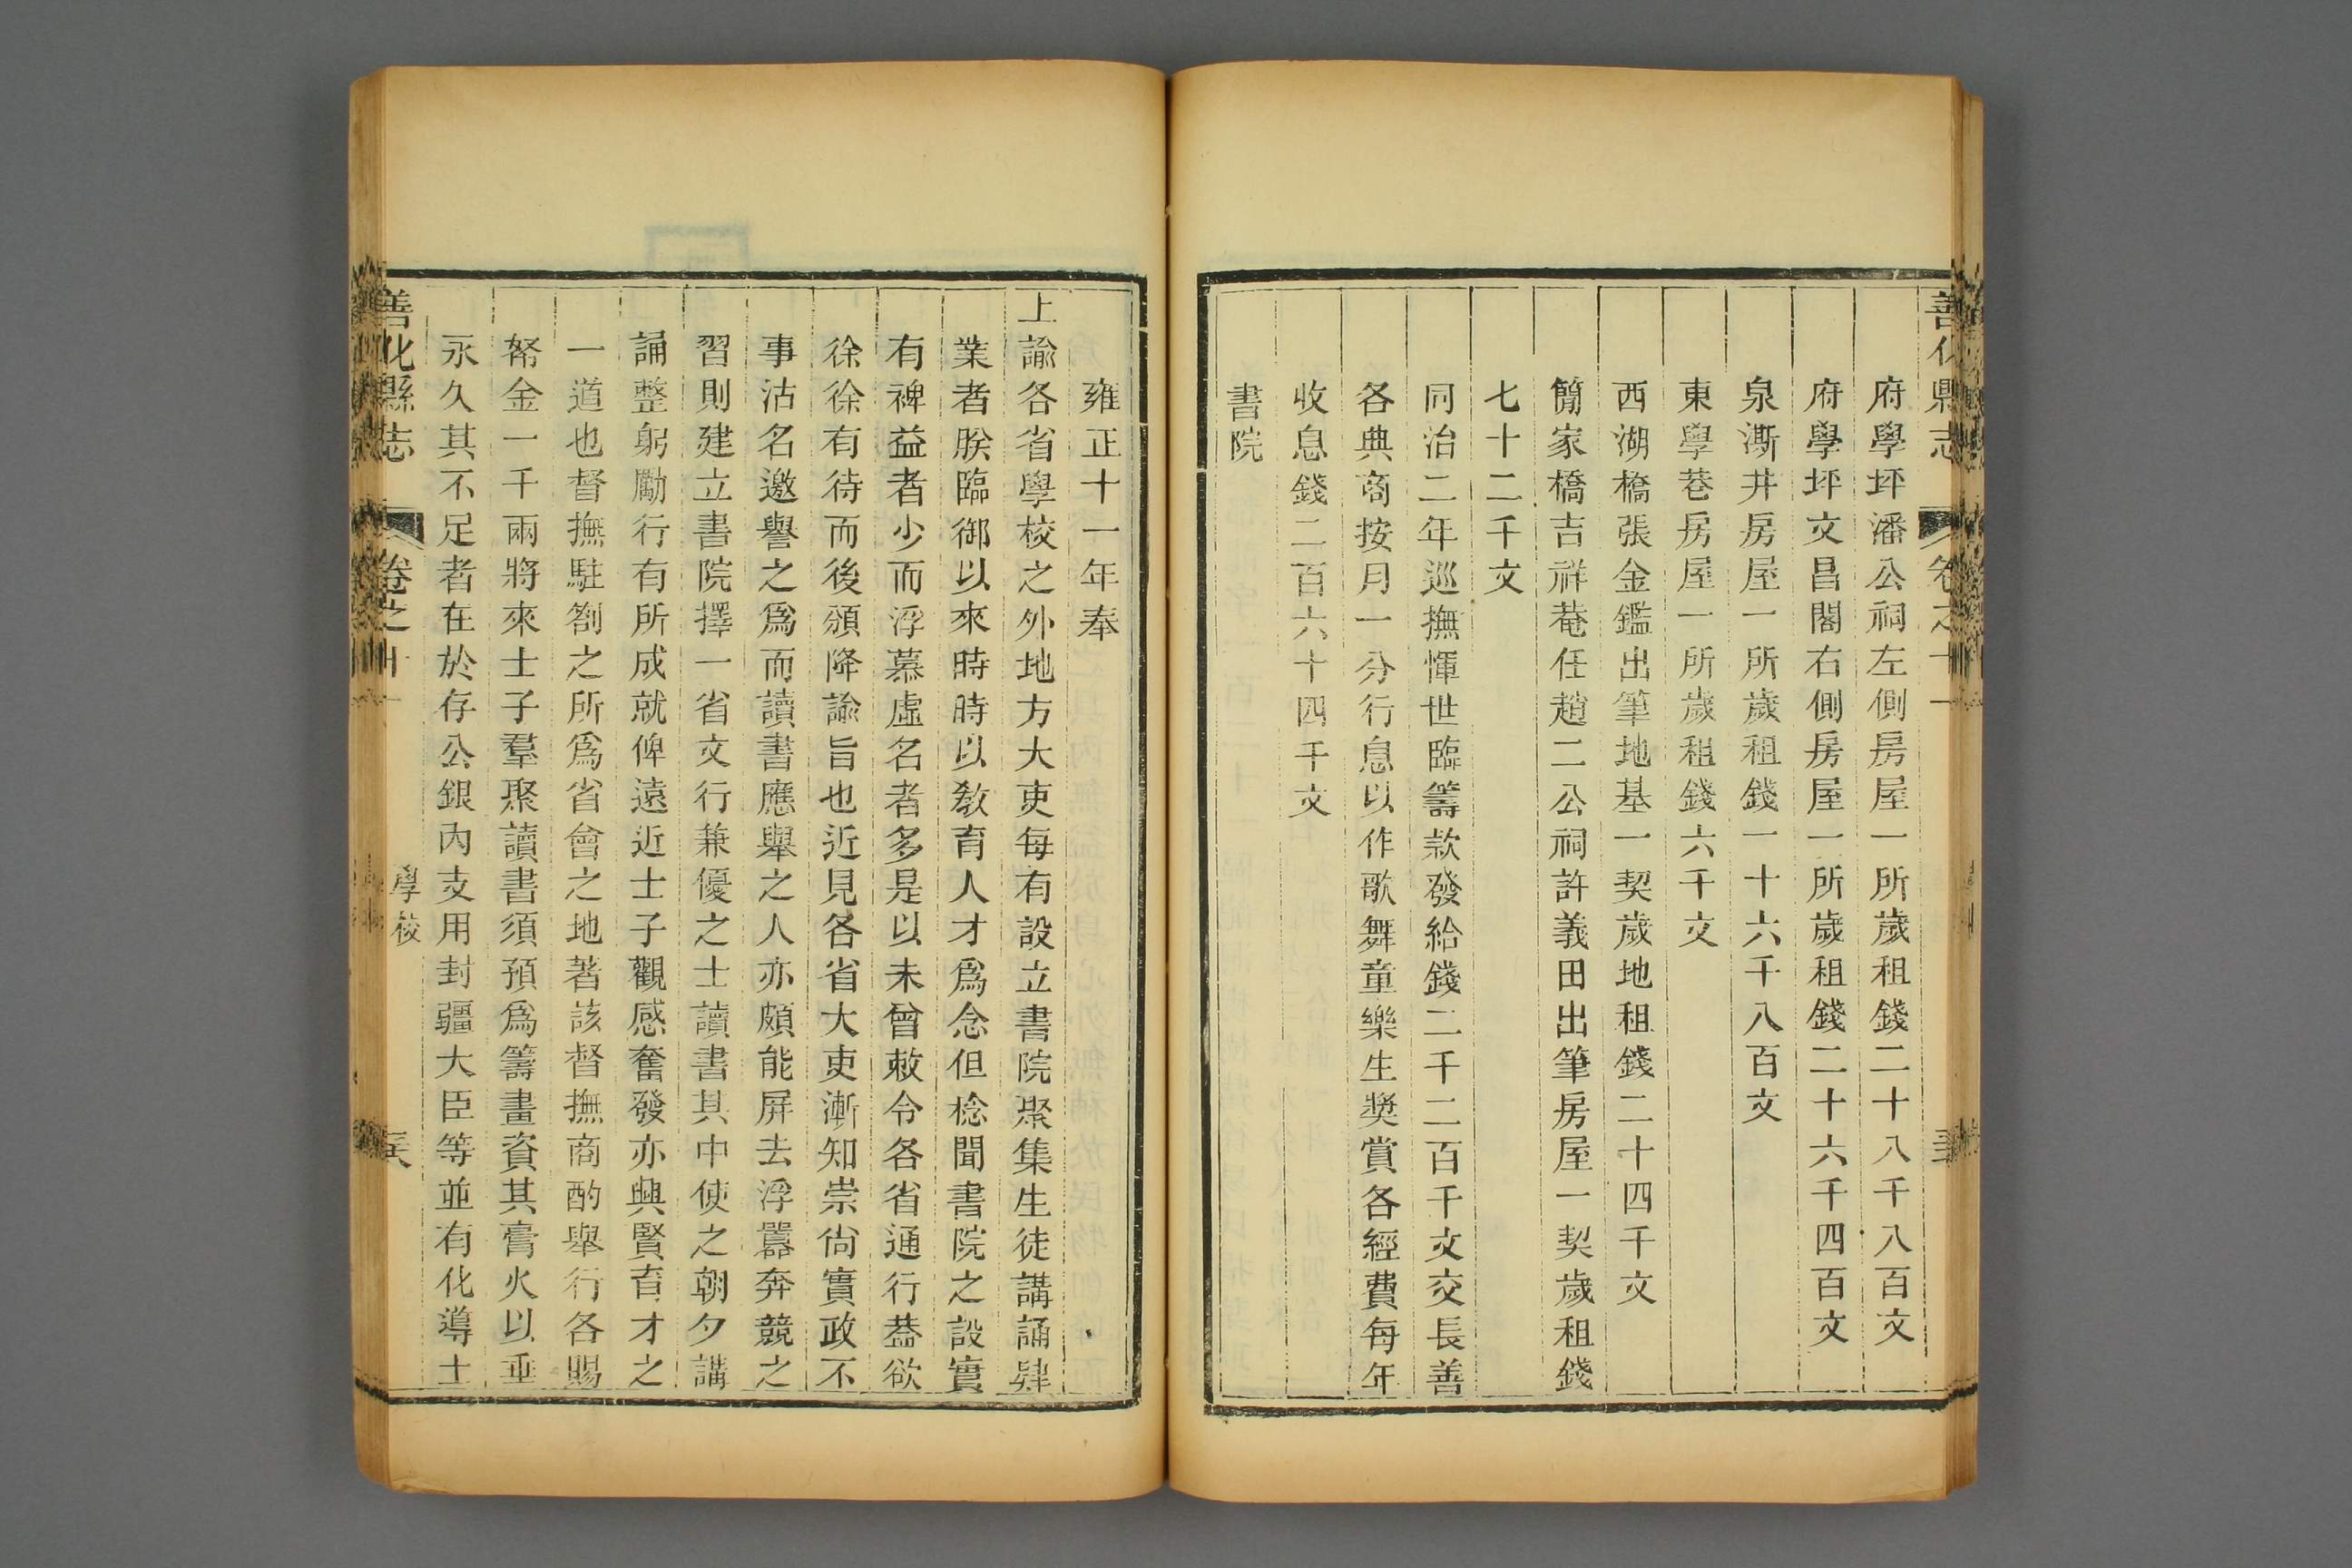 善化縣志 卷之十一
府學坪潘公祠左側房屋一所歲租錢二十八千八百文
府學坪文昌閣右側房屋一所歲租錢二十六千四百文
泉澌井房屋一所歲租錢一十六千八百文
東學巷房屋一所歲租錢六千文
西湖橋張金鑑出筆地基一契歲地租錢二十四千文
簡家橋吉祥菴任趙二公祠許義田出筆房屋一契歲租錢
七十二千文
同治二年巡撫惲世臨籌款發給錢二千二百千文交長善
各典商按月一分行息以作歌舞童樂生奬賞各經費每年
收息錢二百六十四千文
書院
雍正十一年奉
上諭各省學校之外地方大吏每有設立書院聚集生徒講誦肄
業者朕臨御以來時時以敎育人才爲念但稔聞書院之設實
有裨益者少而浮慕虛名者多是以未曾敕令各省通行葢欲
徐徐有待而後頒降諭旨也近見各省大吏漸知崇尙實政不
事沽名邀譽之爲而讀書應舉之人亦頗能屏去浮囂奔競之
習則建立書院擇一省文行兼優之士讀書其中使之朝夕講
誦整躬勵行有所成就俾遠近士子觀感奮發亦興賢育才之
一道也督撫駐劄之所爲省會之地著該督撫商酌舉行各賜
帑金一千兩將來士子羣聚讀書須預爲籌畫資其膏火以垂
永久其不足者在於存公銀內支用封疆大臣等並有化導士
善化縣志 卷之十一 學校